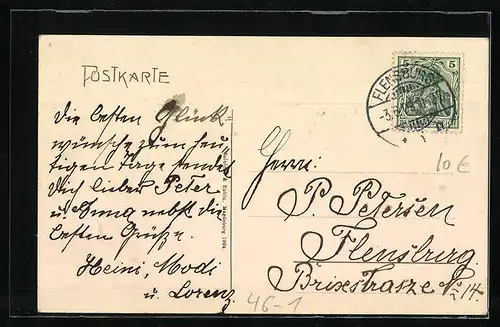 POSTKARTE
Die besten Glück
wünsche zum heu-
tigen Tage sendet
Dich lieber Peter
u. Anna nebst die
besten Grüße.
Heini, Modi
u. Lorenz
5 5
FLENSBURG
Herrn:
P. Petersen
Flensburg.
Brixstrasze No 14.
10 €
46-1